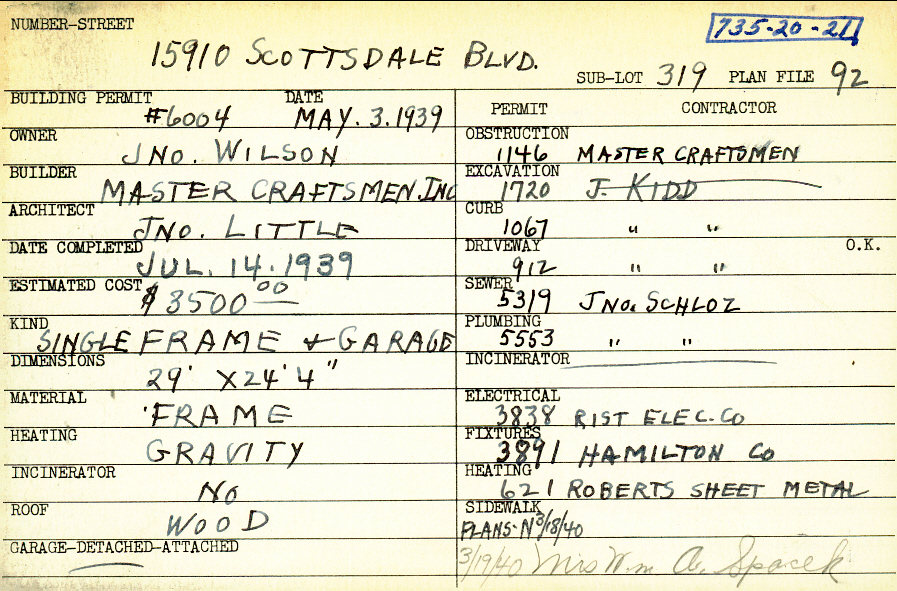 NUMBER-STREET
735-20-21
15910 SCOTTSDALE BLVD.
SUB-LOT 319 PLAN FILE 92
BUILDING PERMIT DATE
#6004 MAY. 3. 1939
OWNER
JNO. WILSON
BUILDER
MASTER CRAFTSMEN. INC
ARCHITECT
JNO. LITTLE
DATE COMPLETED
JUL. 14. 1939
ESTIMATED COST
$ 3500 00
KIND
SINGLE FRAME & GARAGE
DIMENSIONS
29' X 24' 4"
MATERIAL
FRAME
HEATING
GRAVITY
INCINERATOR
NO
ROOF
WOOD
GARAGE-DETACHED-ATTACHED
PERMIT CONTRACTOR
OBSTRUCTION
1146 MASTER CRAFTSMEN
EXCAVATION
1720 J. KIDD
CURB
1067 " "
DRIVEWAY O.K.
912 " "
SEWER
5319 JNO. SCHLOZ
PLUMBING
5553 " "
INCINERATOR
ELECTRICAL
3838 RIST ELEC. CO
FIXTURES
3891 HAMILTON CO
HEATING
621 ROBERTS SHEET METAL
SIDEWALK
PLANS-N 3/18/40
3/19/40 Mrs Wm A. Spacek